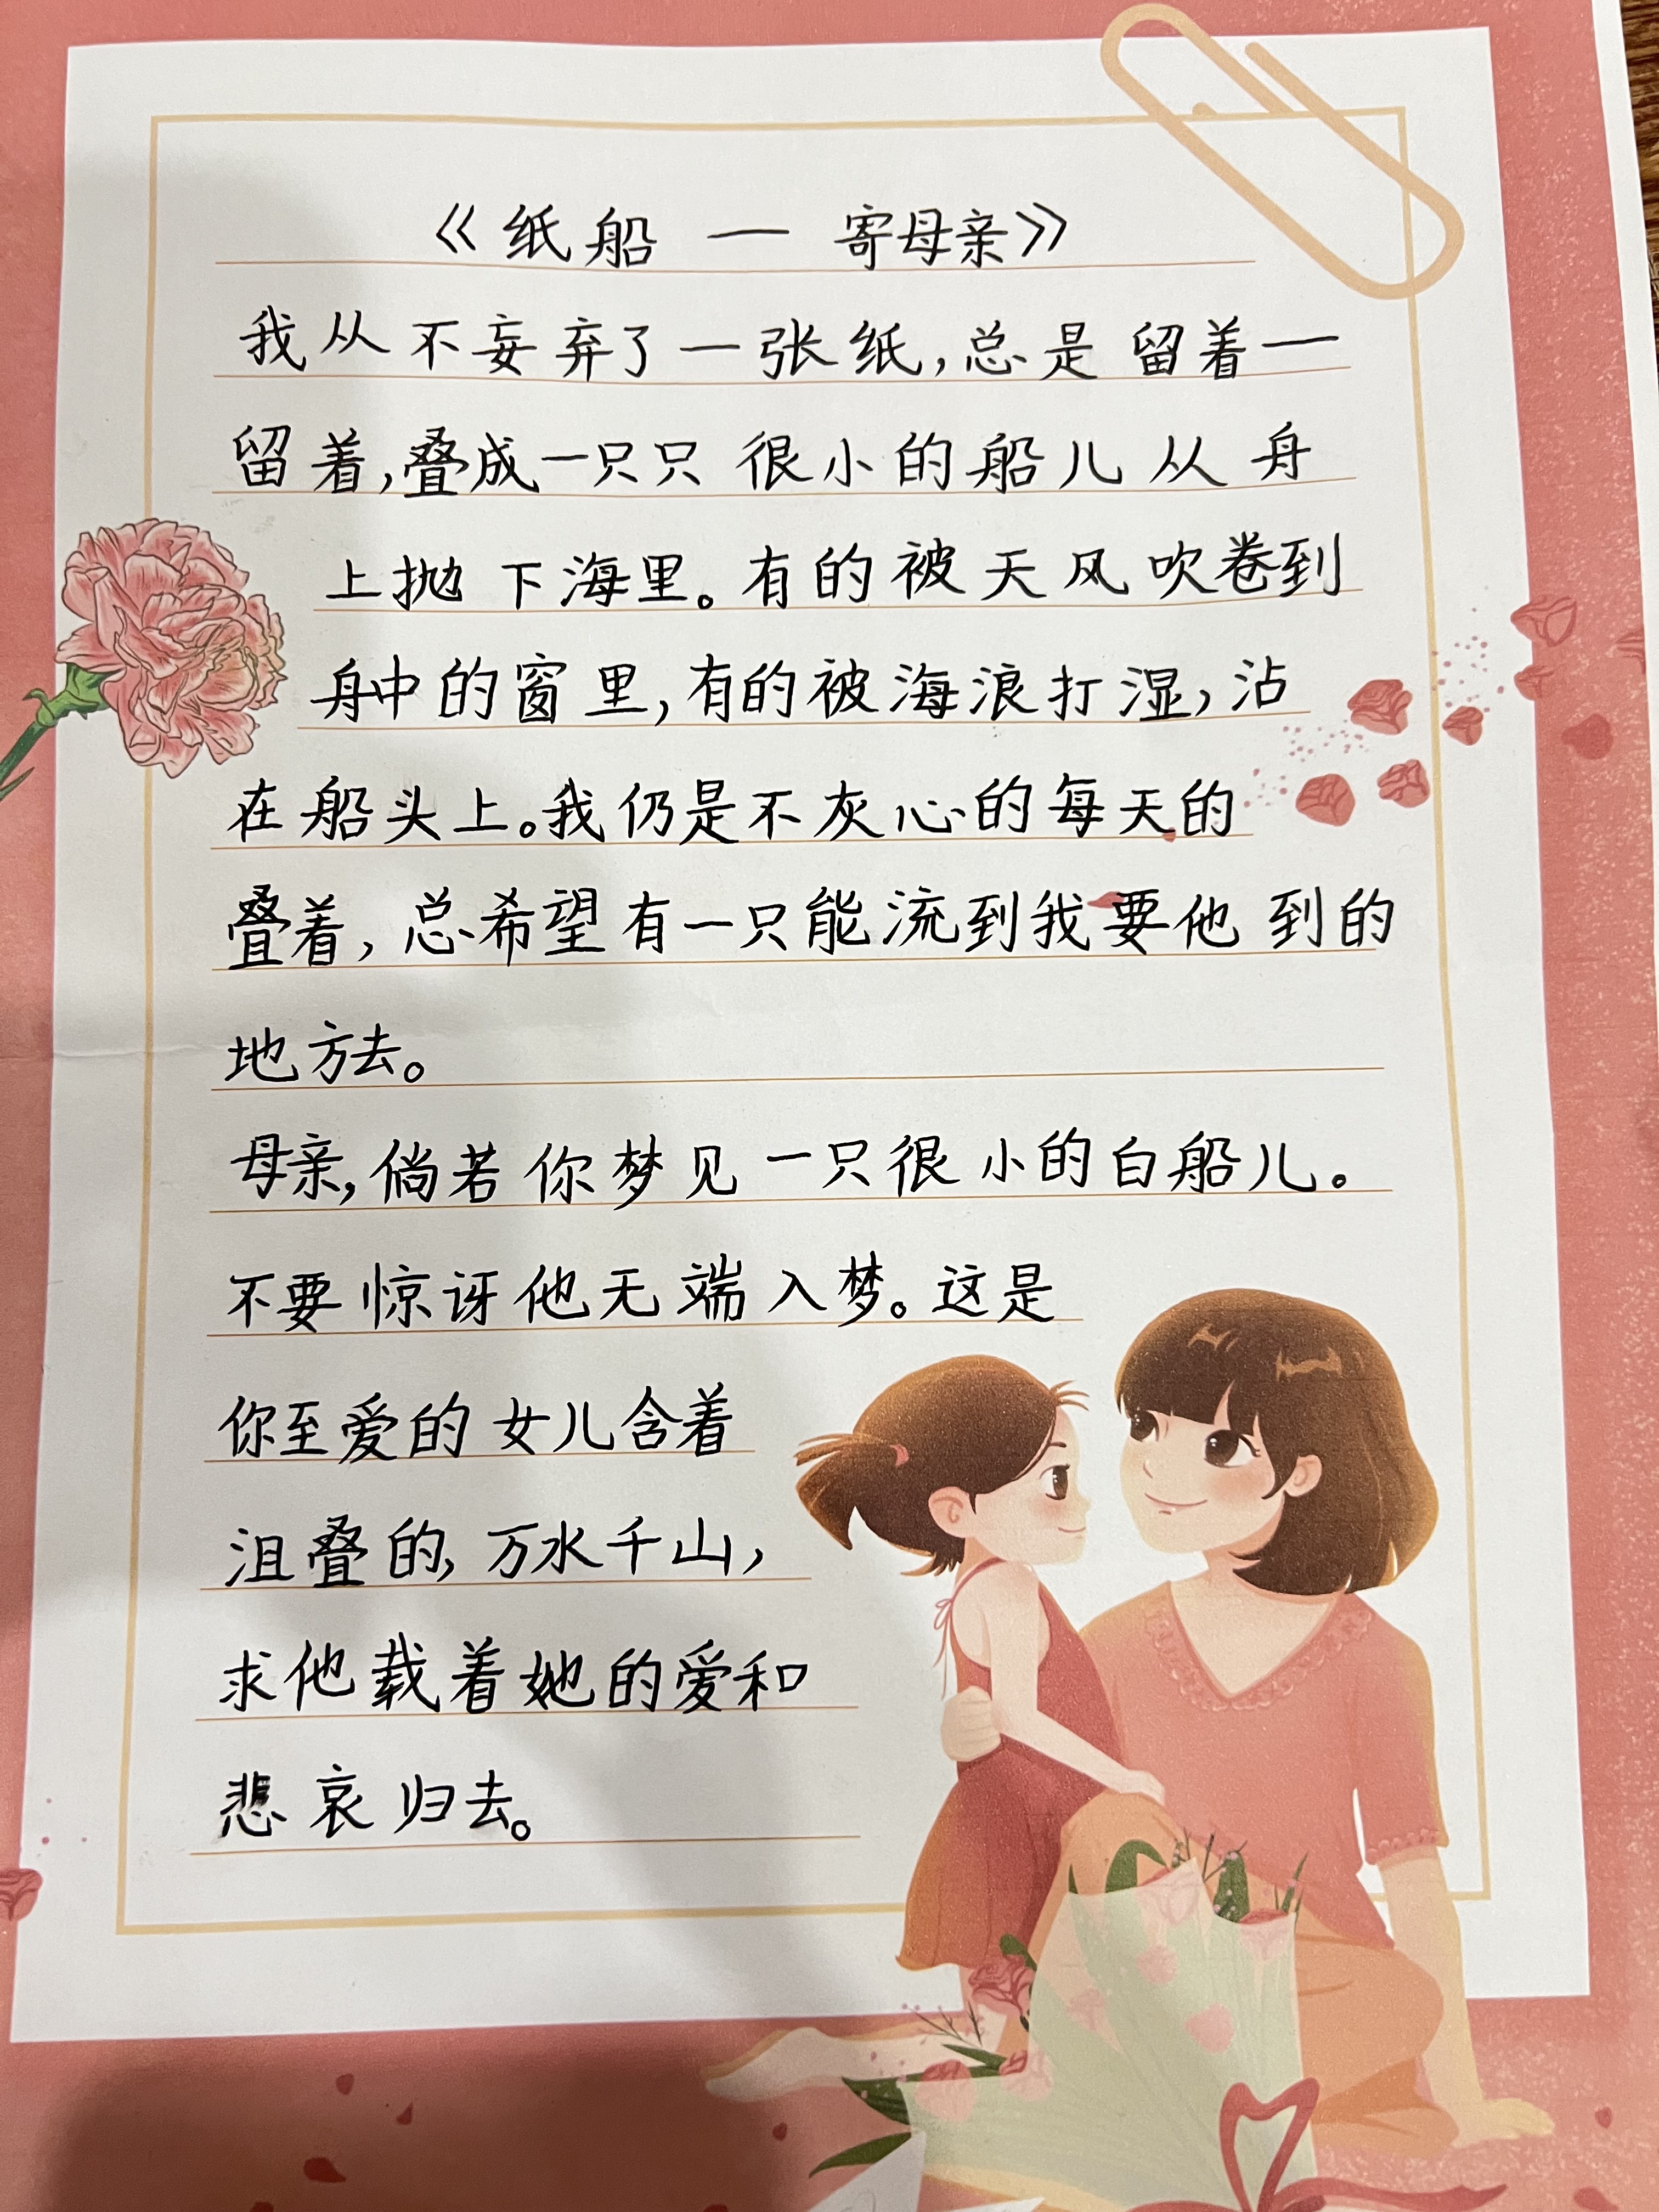 《纸船 — 寄母亲》
我从不妄弃了一张纸，总是留着一
留着，叠成一只只很小的船儿从舟
上抛下海里。有的被天风吹卷到
舟中的窗里，有的被海浪打湿，沾
在船头上。我仍是不灰心的每天的
叠着，总希望有一只能流到我要他到的
地方去。
母亲，倘若你梦见一只很小的白船儿。
不要惊讶他无端入梦。这是
你至爱的女儿含着
沮叠的，万水千山，
求他载着她的爱和
悲哀归去。